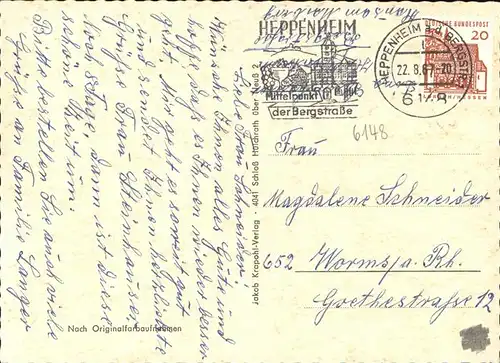 Liebe Frau Schneider!
Wünsche Ihnen alles Gute und
hoffe daß es Ihnen wieder besser
geht. es soweit gut
und sendet Ihnen herzlichste
Grüße Frau Steinhauser.
Noch 8 Tage, dann ist diese
schöne Zeit um.
Bitte bestellen Sie auch viele
Grüße an Familie Langer
Nach Originalfarbaufnahmen
Jakob Krapohl-Verlag - 4041 Schloß Hülchrath über Neuß
HEPPENHEIM
Mittelpunkt
der Bergstraße
HEPPENHEIM a. d. BERGSTR.
22.8.67-20
6148
DEUTSCHE BUNDESPOST
20
6148
Frau
Magdalene Schneider
652 Worms/a. Rh.
Goethestraße 12